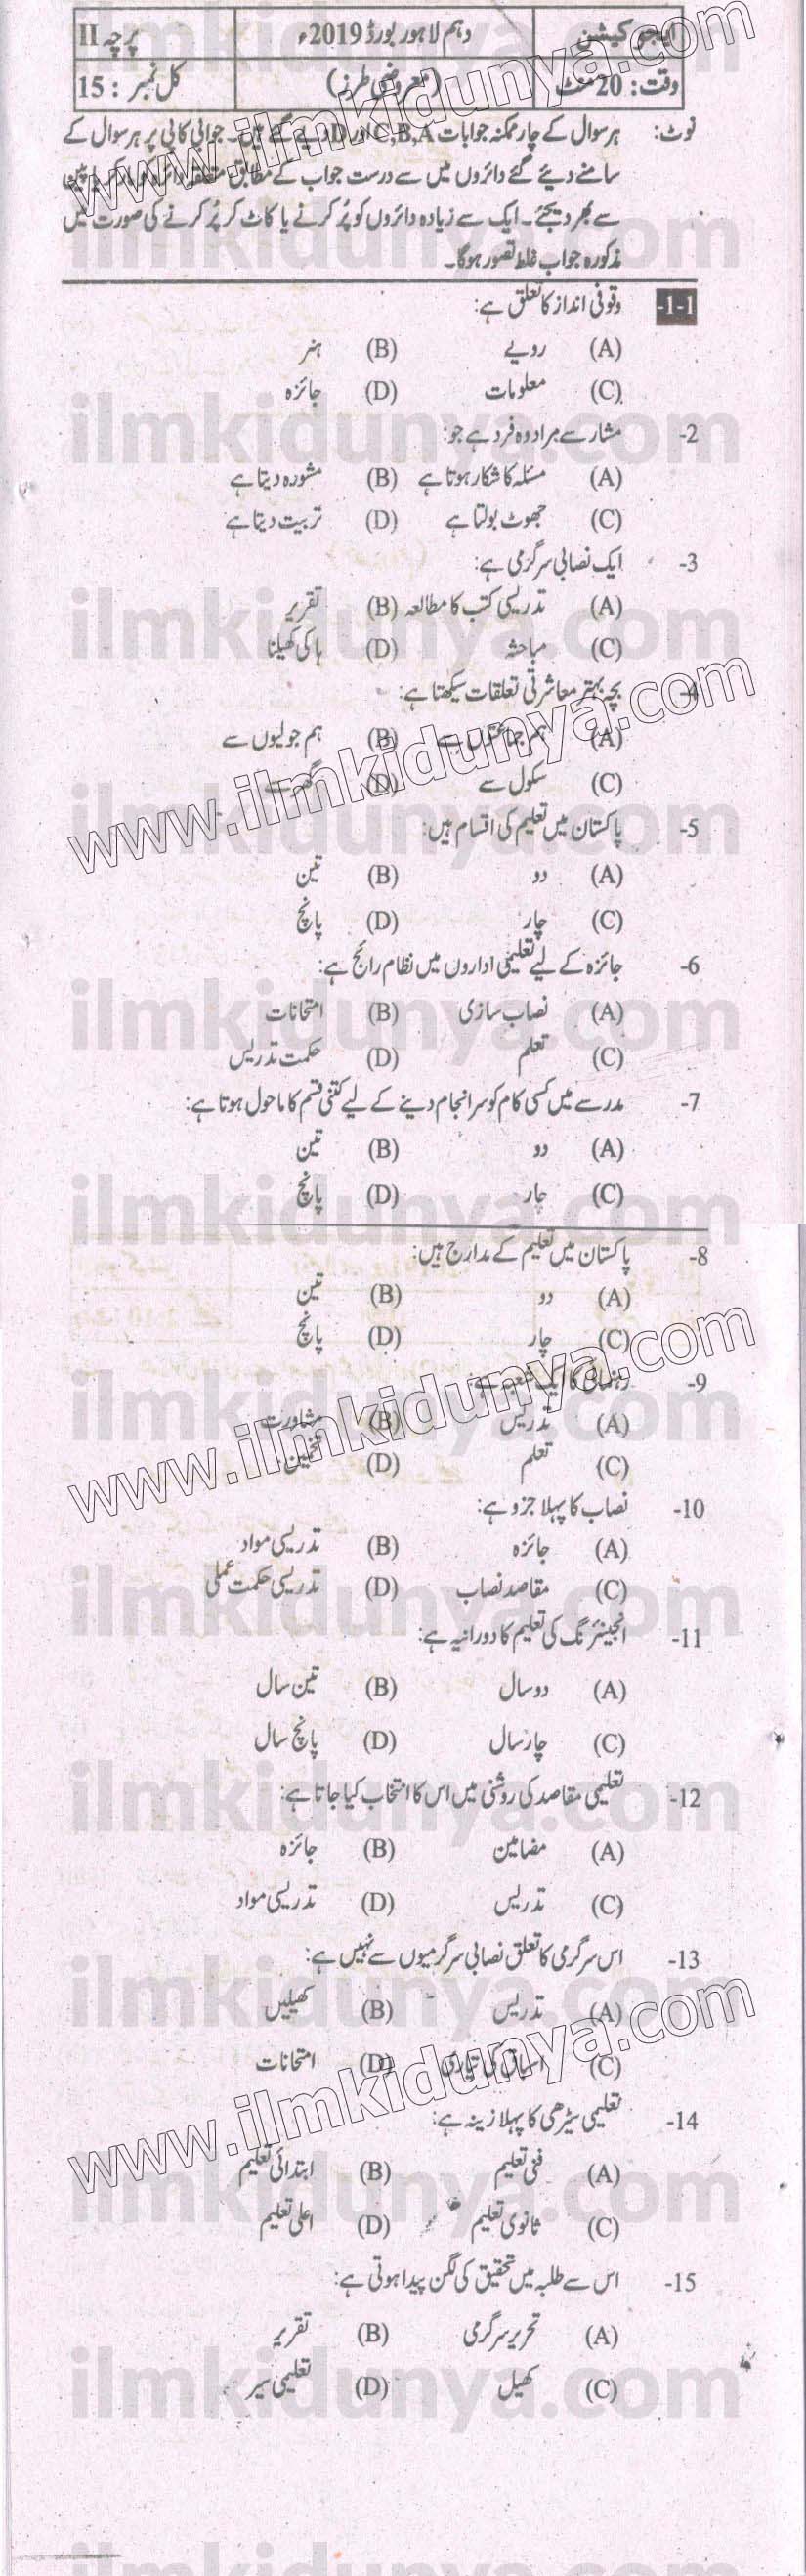 ایجوکیشن دہم لاہور بورڈ 2019ء پرچہ II
وقت: 20 منٹ (معروضی طرز) کل نمبر: 15
نوٹ: ہر سوال کے چار ممکنہ جوابات C,B,A اور D دیے گئے ہیں۔ جوابی کاپی پر ہر سوال کے
سامنے دیئے گئے دائروں میں سے درست جواب کے مطابق متعلقہ دائرہ کو مارکر یا پین
سے بھر دیجئے۔ ایک سے زیادہ دائروں کو پُر کرنے یا کاٹ کر پُر کرنے کی صورت میں
مذکورہ جواب غلط تصور ہوگا۔
1-1- وقوفی انداز کا تعلق ہے:
(A) رویے (B) ہنر
(C) معلومات (D) جائزہ
2- مشار سے مراد وہ فرد ہے جو:
(A) مسئلہ کا شکار ہوتا ہے (B) مشورہ دیتا ہے
(C) جھوٹ بولتا ہے (D) تربیت دیتا ہے
3- ایک نصابی سرگرمی ہے:
(A) تدریسی کتب کا مطالعہ (B) تقریر
(C) مباحثہ (D) ہاکی کھیلنا
4- بچہ بہتر معاشرتی تعلقات سیکھتا ہے:
(A) ہم جماعتوں سے (B) ہم جولیوں سے
(C) سکول سے (D) گھر سے
5- پاکستان میں تعلیم کی اقسام ہیں:
(A) دو (B) تین
(C) چار (D) پانچ
6- جائزہ کے لیے تعلیمی اداروں میں نظام رائج ہے:
(A) نصاب سازی (B) امتحانات
(C) تعلم (D) حکمت تدریس
7- مدرسے میں کسی کام کو سرانجام دینے کے لیے کتنی قسم کا ماحول ہوتا ہے:
(A) دو (B) تین
(C) چار (D) پانچ
8- پاکستان میں تعلیم کے مدارج ہیں:
(A) دو (B) تین
(C) چار (D) پانچ
9- رہنمائی کا ایک شعبہ ہے:
(A) تدریس (B) مشاورت
(C) تعلم (D) تخمین
10- نصاب کا پہلا جزو ہے:
(A) جائزہ (B) تدریسی مواد
(C) مقاصد نصاب (D) تدریسی حکمت عملی
11- انجینئرنگ کی تعلیم کا دورانیہ ہے:
(A) دو سال (B) تین سال
(C) چار سال (D) پانچ سال
12- تعلیمی مقاصد کی روشنی میں اس کا انتخاب کیا جاتا ہے:
(A) مضامین (B) جائزہ
(C) تدریس (D) تدریسی مواد
13- اس سرگرمی کا تعلق نصابی سرگرمیوں سے نہیں ہے:
(A) تدریس (B) کھیلیں
(C) اسباق کی تیاری (D) امتحانات
14- تعلیمی سیڑھی کا پہلا زینہ ہے:
(A) فنی تعلیم (B) ابتدائی تعلیم
(C) ثانوی تعلیم (D) اعلی تعلیم
15- اس سے طلبہ میں تحقیق کی لگن پیدا ہوتی ہے:
(A) تحریر سرگرمی (B) تقریر
(C) کھیل (D) تعلیمی سیر
www.ilmkidunya.com
ilmkidunya.com